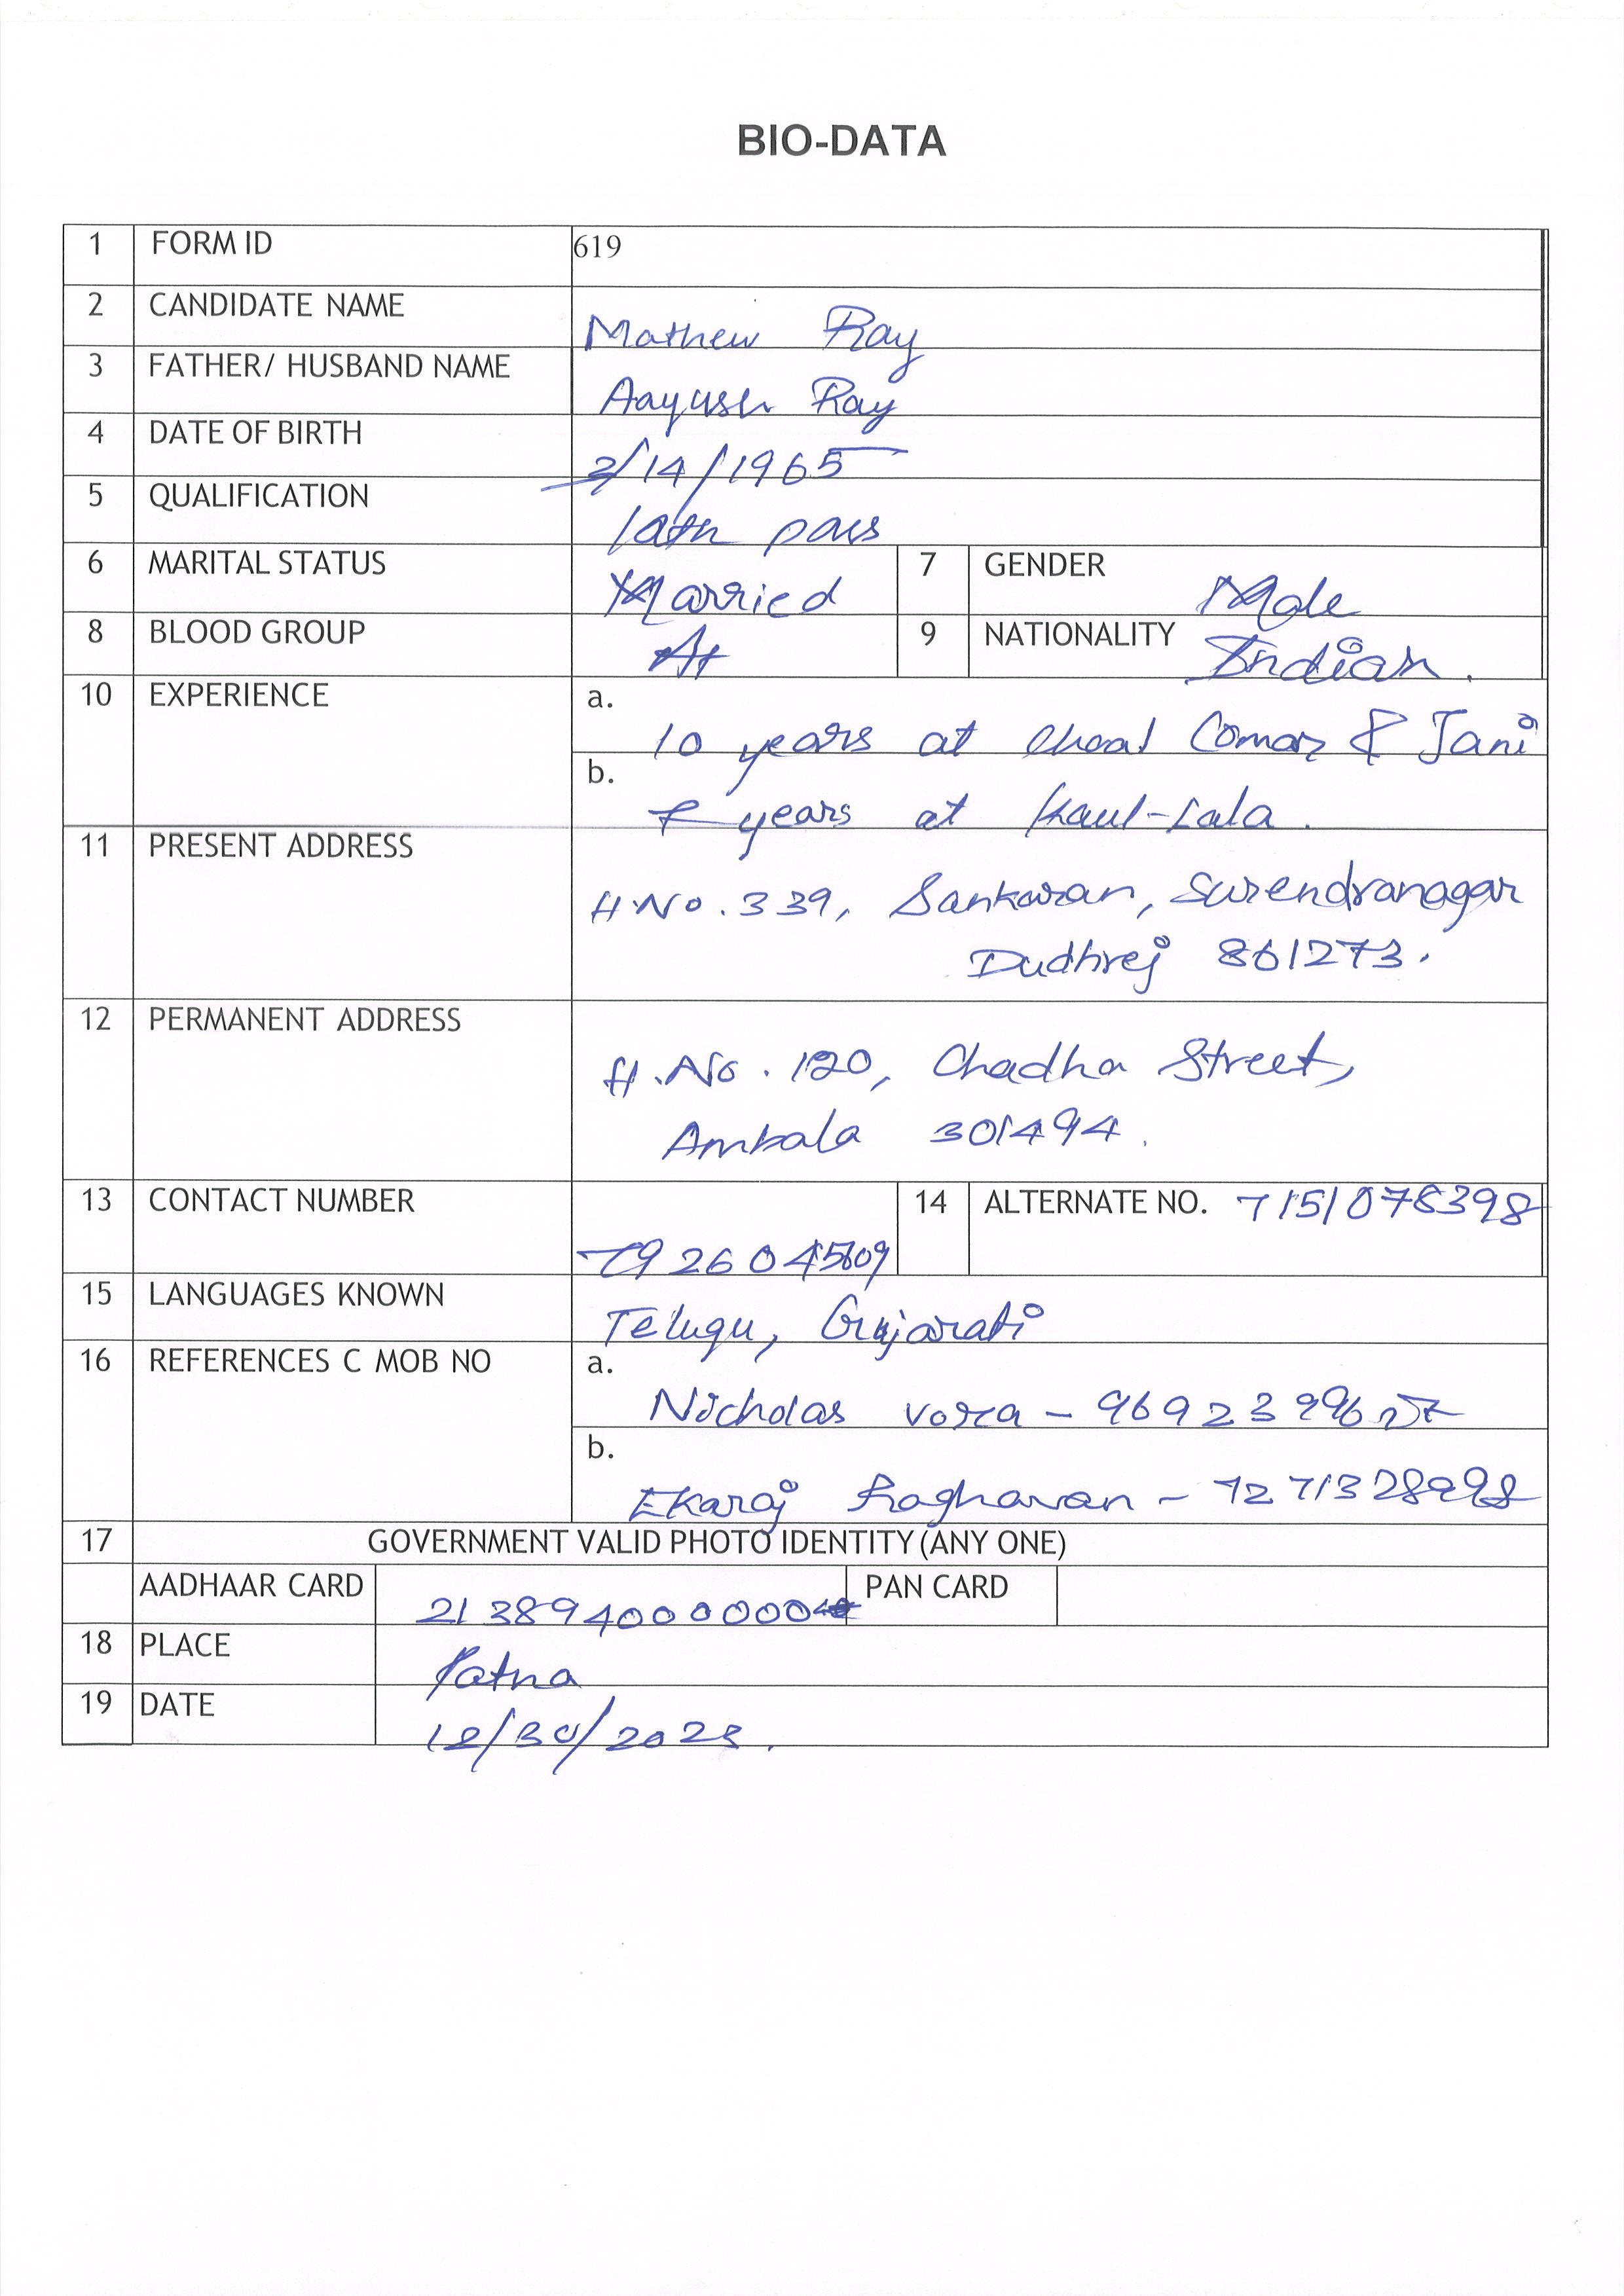 BIO-DATA
1 FORM ID 619
2 CANDIDATE NAME Mathew Ray
3 FATHER/ HUSBAND NAME Aayush Ray
4 DATE OF BIRTH 2/14/1965
5 QUALIFICATION 10th pass
6 MARITAL STATUS Married 7 GENDER Male
8 BLOOD GROUP A+ 9 NATIONALITY Indian.
10 EXPERIENCE a. 10 years at & Jani
b. 7 years at Kaul-Lala.
11 PRESENT ADDRESS H.No. 339, Sankaran, Surendranagar
Dudhrej 861273.
12 PERMANENT ADDRESS H.No. 120, Chadha Street,
Ambala 301494.
13 CONTACT NUMBER 7926045609 14 ALTERNATE NO. 7151078398
15 LANGUAGES KNOWN Telugu, Gujarati
16 REFERENCES C MOB NO a. Nicholas vora -
b. Ekaraj Raghavan - 7271328998
17 GOVERNMENT VALID PHOTO IDENTITY (ANY ONE)
AADHAAR CARD PAN CARD
18 PLACE Patna
19 DATE 12/30/2023.